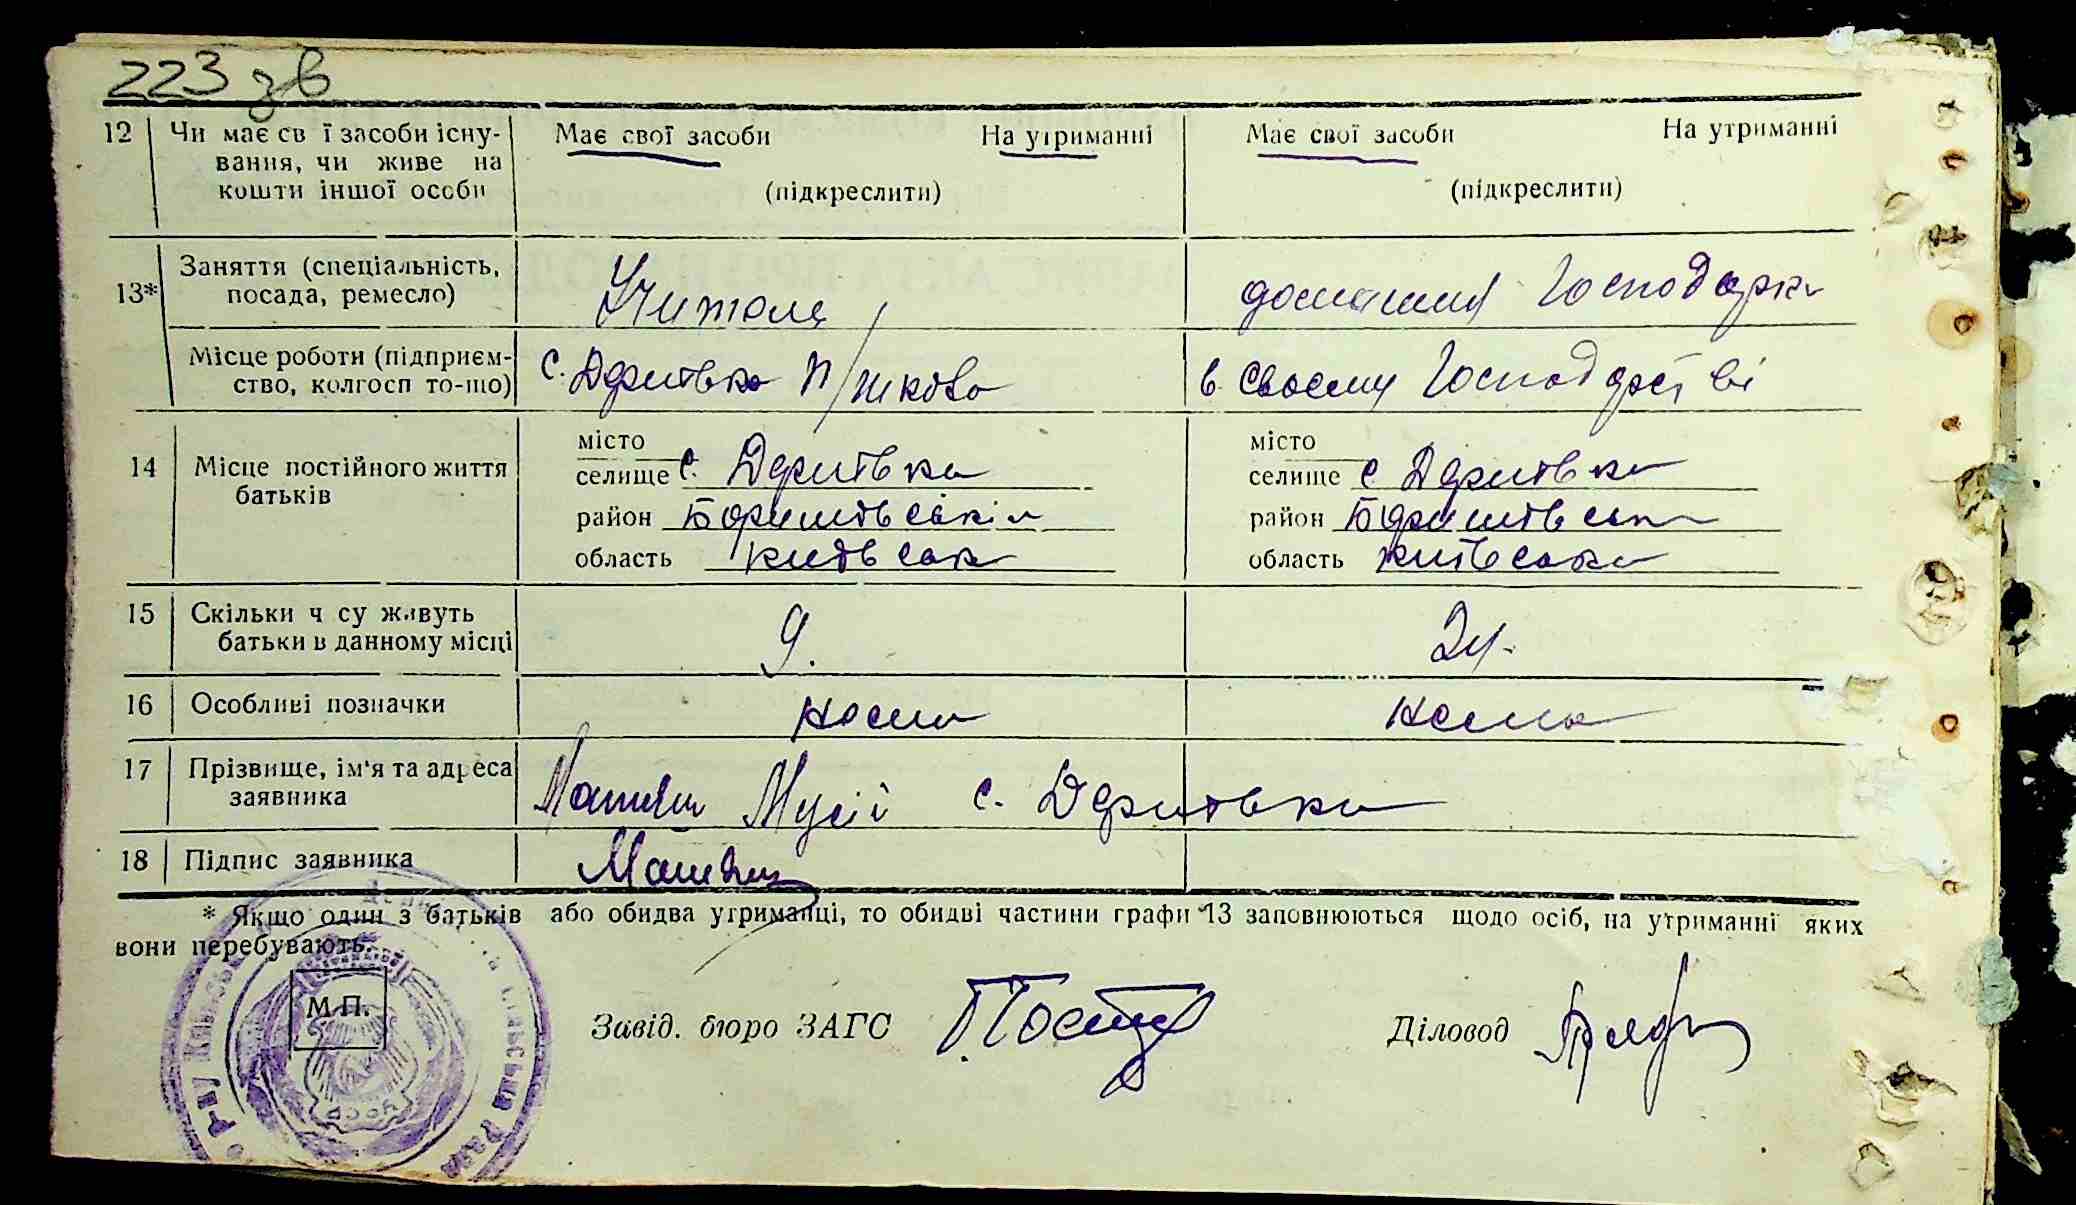 223 зв
12 Чи має св ї засоби існу- Має свої засоби На утриманні Має свої засоби На утриманні
вання, чи живе на
кошти іншої особи (підкреслити) (підкреслити)
13* Заняття (спеціальність, Учитель домашня господарка
посада, ремесло)
Місце роботи (підприєм- с. Дернівка п/школа в своєму господарстві
ство, колгосп то-що)
14 Місце постійного життя місто місто
батьків селище с. Дернівка селище с. Дернівка
район Баришівський район Баришівськи
область київськ область київська
15 Скільки ч су живуть 9. 24.
батьки в данному місці
16 Особливі позначки нема нема
17 Прізвище, ім'я та адреса Мусій с. Дернівка
заявника
18 Підпис заявника
* Якщо один з батьків або обидва утриманці, то обидві частини графи 13 заповнюються щодо осіб, на утриманні яких
вони перебувають.
М.П. Завід. бюро ЗАГС Діловод